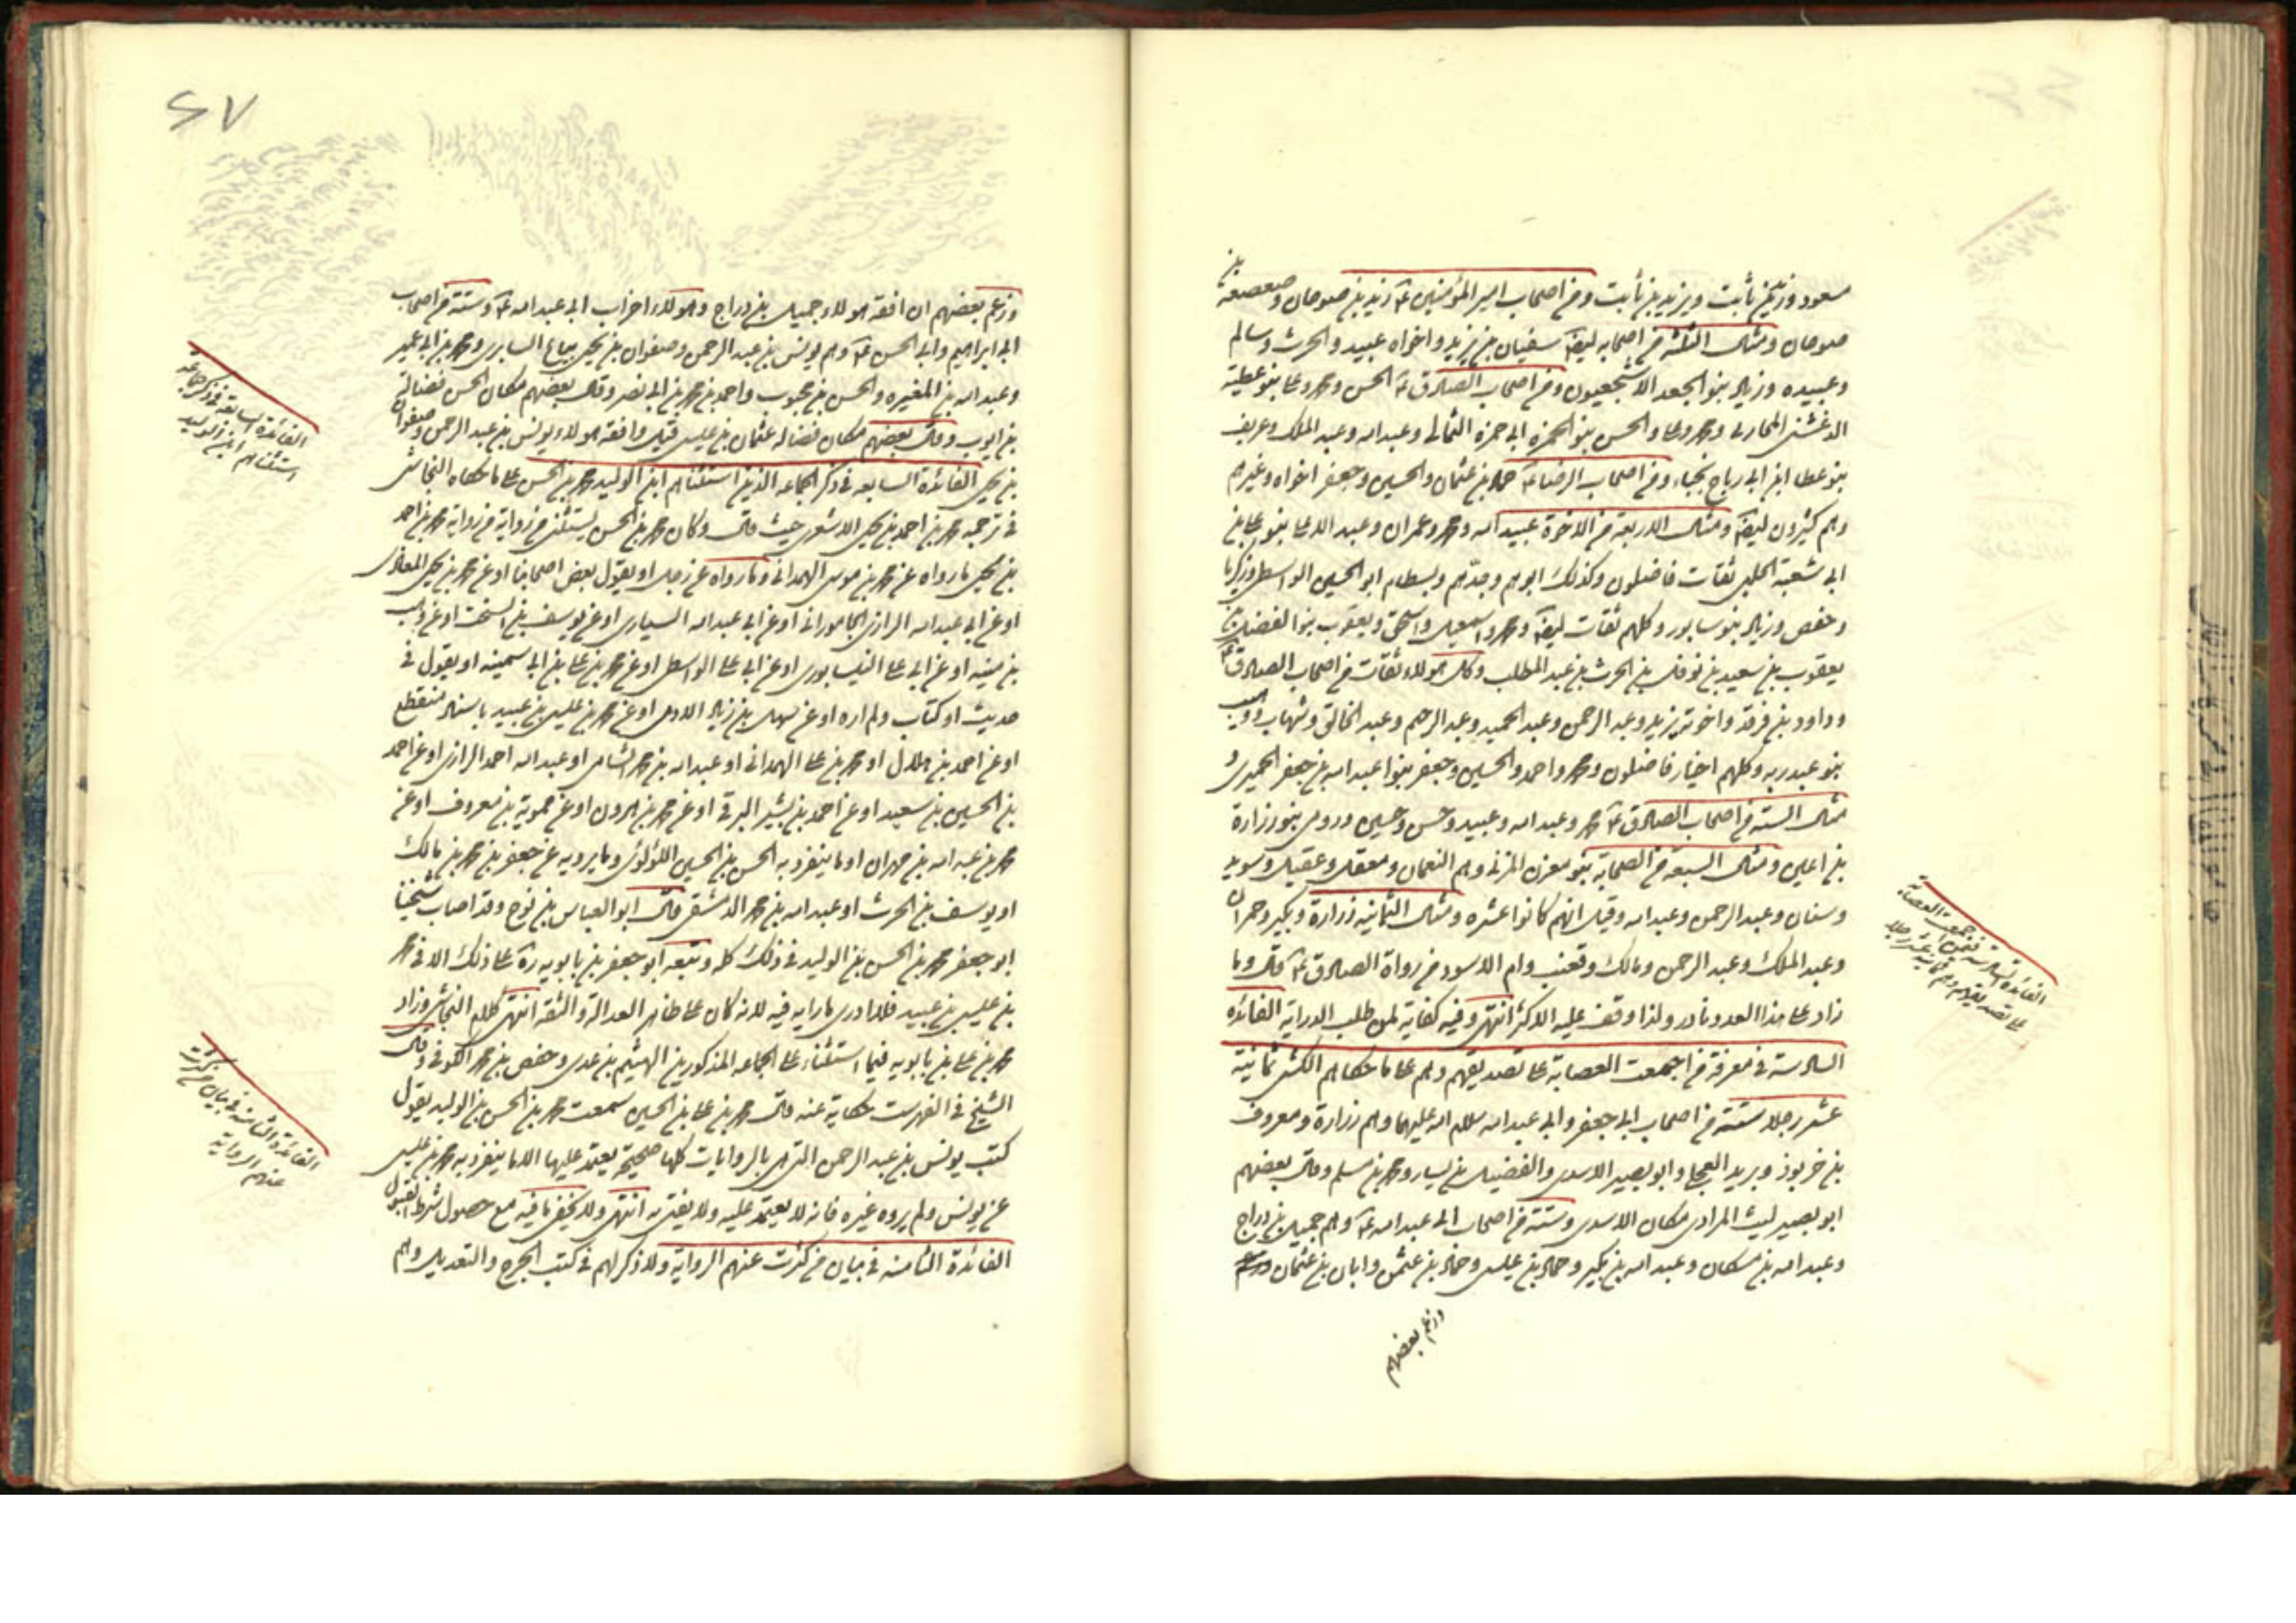 مسعود وزيد بن ثابت ويزيد بن ثابت ومن اصحاب امير المؤمنين ع زيد بن صوحان وصعصعة بن
صوحان ومثال الثلثة من اصحابه ايضا سفيان بن يزيد واخواه عبيد والحرث وسالم
وعبيده وزياد بنو الجعد الاشجعيون ومن اصحاب الصادق ع الحسن ومحمد وعلى بنو عطية
الدغشى المحاربى ومحمد وعلى والحسن بنو الحمزه ابى حمزة الثمالى وعبد الله وعبد الملك وعريف
بنو عطا ابن ابى رباح نجباء ومن اصحاب الرضا ع حماد بن عثمان والحسين وجعفر اخواه وغيرهم
وهم كثيرون ايضا ومثال الاربعة من الاخوة عبيد الله ومحمد وعمران وعبد الاعلى بنو على بن
ابى شعبة الحلبى ثقات فاضلون وكذلك ابوهم وجدهم وبسطام ابو الحسين الواسطى وزكريا
وحفص وزياد بنو سابور وكلهم ثقات ايضا ومحمد واسمعيل واسحق ويعقوب بنو الفضل بن
يعقوب بن سعيد بن نوفل بن الحرث بن عبد المطلب وكل هولاء ثقات من اصحاب الصادق ع
وداود بن فرقد واخوته يزيد وعبد الرحمن وعبد الحميد وعبد الرحيم وعبد الخالق وشهاب ووهب
بنو عبد ربه وكلهم اخيار فاضلون ومحمد واحمد والحسين وجعفر بنوا عبد الله بن جعفر الحميرى و
مثال الستة من اصحاب الصادق ع محمد وعبد الله وعبيد وحسن وحسين ورومى بنو زرارة
بن اعين ومثال السبعة من الصحابة بنو مقرن المزنى وهم النعمان ومعقل وعقيل وسويد
وسنان وعبد الرحمن وعبد الله وقيل انهم كانوا عشره ومثال الثمانيه زرارة وبكير وحمران
وعبد الملك وعبد الرحمن ومالك وقعنب وام الاسود من رواة الصادق ع قال وما
زاد على هذا العدد نادر ولذا وقف عليه الاكثر انتهى وفيه كفاية لمن طلب الدراية الفائده
السادسة فى معرفة من اجمعت العصابة على تصديقهم وهم على ما حكاهم الكشى ثمانية
عشر رجلا ستة من اصحاب ابى جعفر وابى عبد الله سلام الله عليهما وهم زرارة ومعروف
بن خربوذ وبريد العجلى وابو بصير الاسدى والفضيل بن يسار ومحمد بن مسلم وقال بعضهم
ابو بصير ليث المرادى مكان الاسدى وستة من اصحاب ابى عبد الله ع وهم جميل بن دراج
وعبد الله بن مسكان وعبد الله بن بكير وحماد بن عيسى وحماد بن عثمن وابان بن عثمان
وزعم بعضهم
الفائدة السادسة فيمن اجمعت العصابة
على تصديقهم وهم ثمانية عشر رجلا
٢٧
وزعم بعضهم ان افقه هولاء جميل بن دراج وهولاء احزاب ابى عبد الله ع وستة من اصحاب
ابى ابراهيم وابى الحسن ع وهم يونس بن عبد الرحمن وصفوان بن يحيى بياع السابرى ومحمد بن ابى عمير
وعبد الله بن المغيره والحسن بن محبوب واحمد بن محمد بن ابى نصر وقال بعضهم مكان الحسن فضالة
بن ايوب وقال بعضهم مكان فضاله عثمان بن عيسى قيل وافقه هولاء يونس بن عبد الرحمن وصفوان
بن يحيى الفائدة السابعه فى ذكر الجماعه الذين استثناهم ابن الوليد محمد بن الحسن على ما حكاه النجاشى
فى ترجمه محمد بن احمد بن يحيى الاشعرى حيث قال وكان محمد بن الحسن يستثنى من رواية من رواية محمد بن احمد
بن يحيى ما رواه عن محمد بن موسى الهمدانى وما رواه عن رجل او يقول بعض اصحابنا او عن محمد بن يحيى المعاذى
او عن ابى عبد الله الرازى الجامورانى او عن ابى عبد الله السيارى او عن يوسف بن السخت او عن وهب
بن منبه او عن ابى على النيسابورى او عن ابى على الواسطى او عن محمد بن على بن ابى سمينه او يقول فى
حديث او كتاب ولم اره او عن سهل بن زياد الادمى او عن محمد بن عيسى بن عبيد باسناد منقطع
او عن احمد بن هلال او محمد بن على الهمدانى او عبد الله بن محمد الشامى او عبد الله احمد الرازى او عن احمد
بن الحسين بن سعيد او عن احمد بن بشير البرقى او عن محمد بن هرون او عن ممويه بن معروف او عن
محمد بن عبد الله بن مهران او ما يتفرد به الحسن بن الحسين اللؤلؤى وما يرويه عن جعفر بن محمد بن مالك
او يوسف بن الحرث او عبد الله بن محمد الدمشقى قال ابو العباس بن نوح وقد اصاب شيخنا
ابو جعفر محمد بن الحسن بن الوليد فى ذلك كله وتبعه ابو جعفر بن بابويه ره على ذلك الا فى محمد
بن عيسى بن عبيد فلا ادرى ما رايه فيه لانه كان على ظاهر العدالة والثقه انتهى كلام النجاشى وزاد
محمد بن على بن بابويه فيما استثناء على الجماعه المذكورين الهيثم بن عدى وحفص بن محمد الكوفى وقال
الشيخ فى الفهرست حكاية عنه قال محمد بن على بن الحسين سمعت محمد بن الحسن بن الوليد يقول
كتب يونس بن عبد الرحمن التى هى بالروايات كلها صحيحة يعتمد عليها الا ما يتفرد به محمد بن عيسى
عن يونس ولم يروه غيره فانه لا يعتمد عليه ولا يفتى به انتهى ولا يخفى ما فيه مع حصول شرط القبول
الفائدة الثامنه فى بيان من كثرت عنهم الرواية ولا ذكر لهم فى كتب الجرح والتعديل وهم
الفائدة السابعة فى ذكر جماعة
استثناهم ابن الوليد
الفائدة الثامنه فى بيان من كثرت
عنهم الرواية